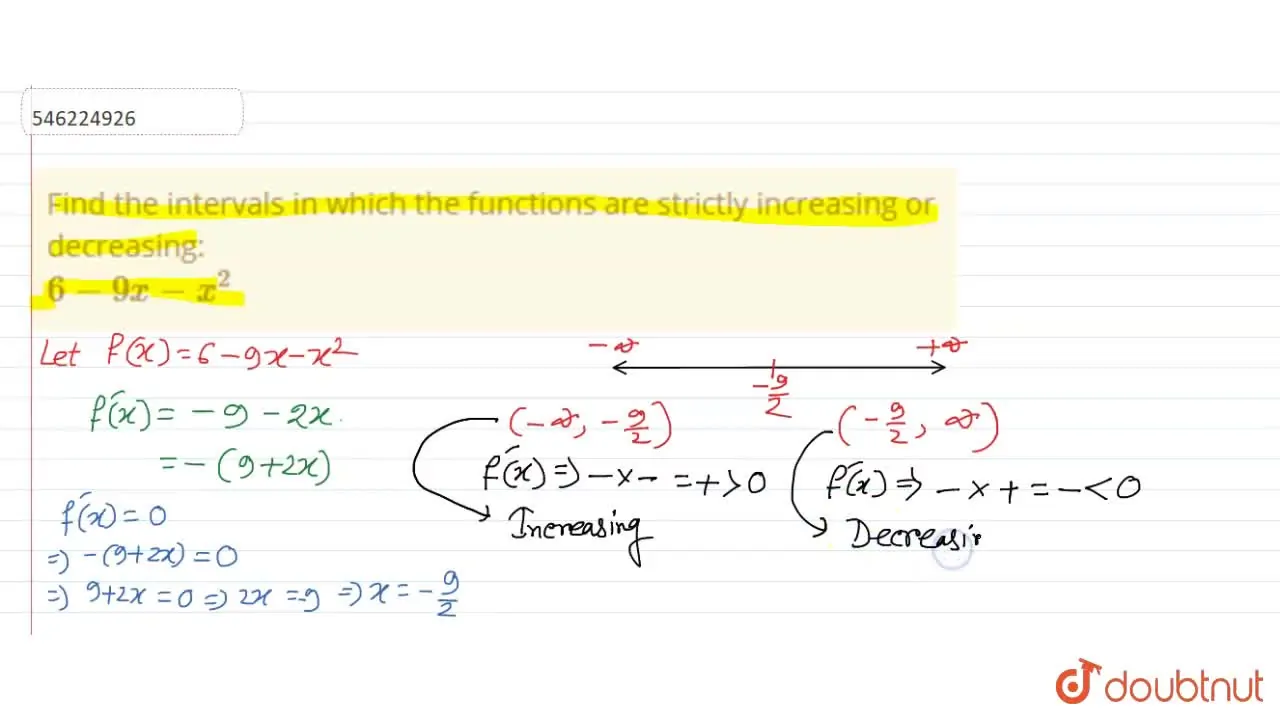 546224926
Find the intervals in which the functions are strictly increasing or
decreasing:
6 − 9x − x²
Let f(x) = 6 - 9x - x²
f'(x) = - 9 - 2x.
= - (9+2x)
f'(x) = 0
=) - (9+2x) = 0
=) 9+2x = 0 =) 2x = -9 =) x = - 9/2
-∞ +∞
-9/2
(-∞, -9/2)
f'(x) => - x - = + > 0
Increasing
(-9/2, ∞)
f'(x) => - x + = - < 0
Decreasin
doubtnut